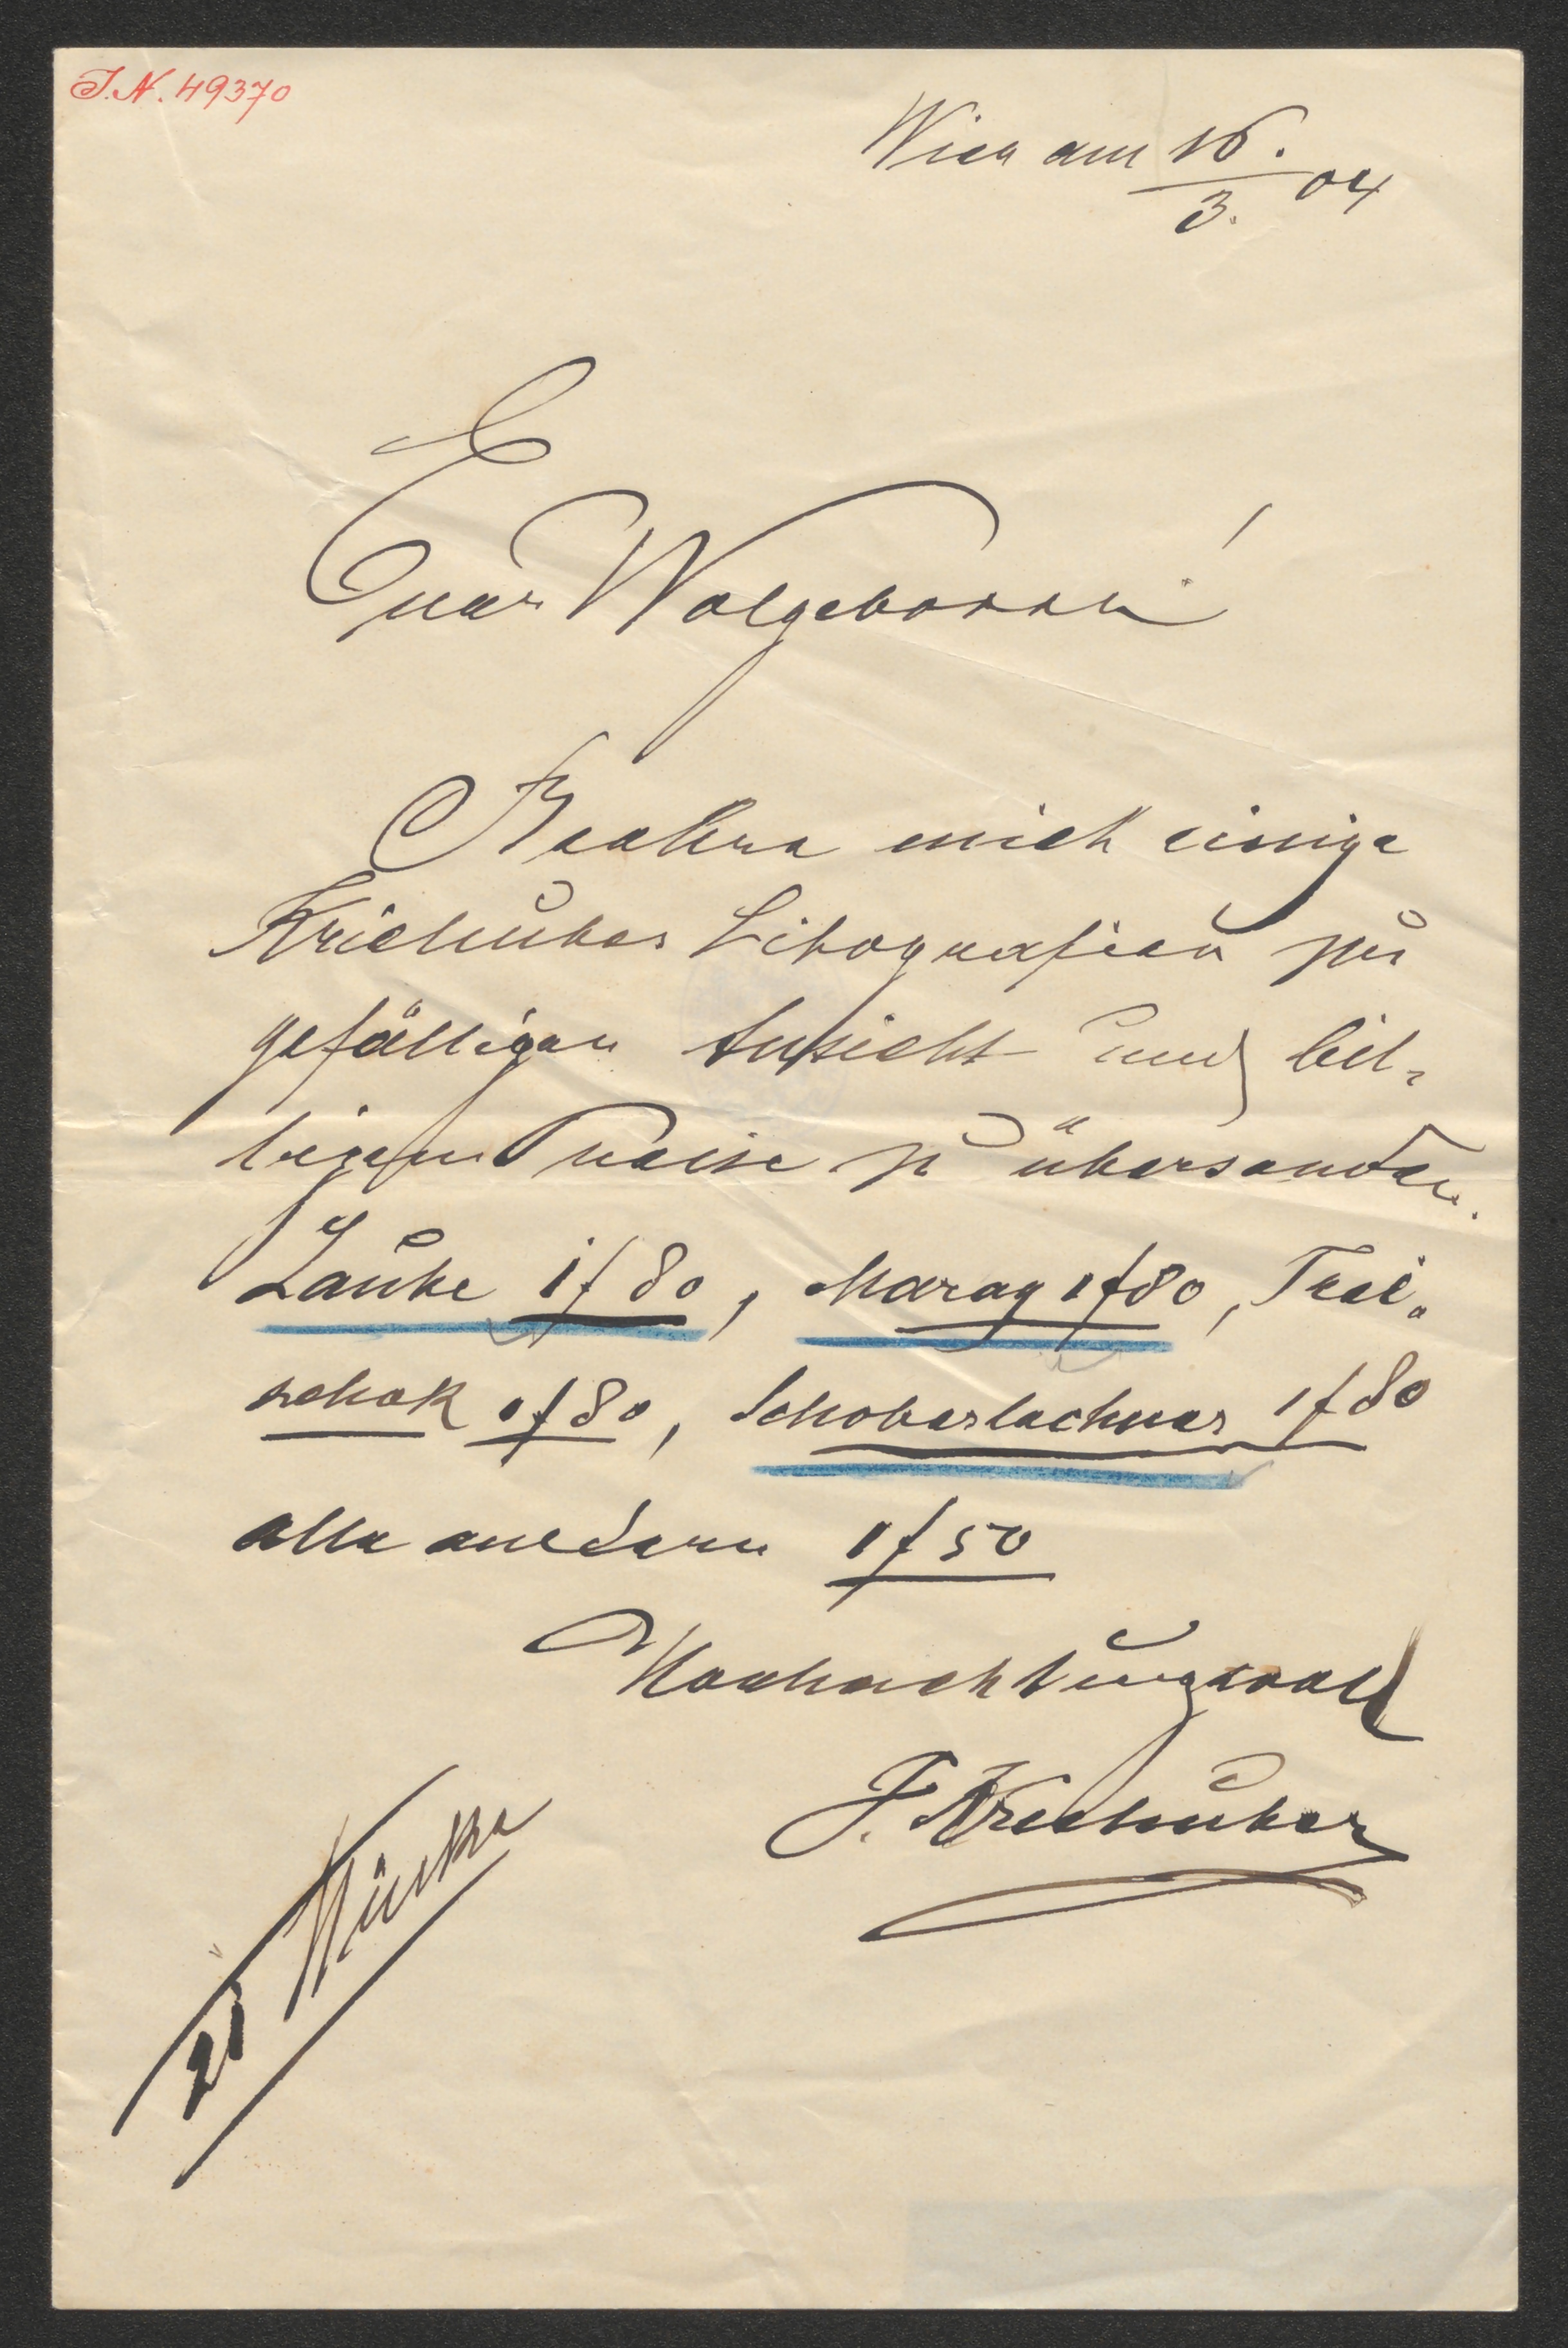 J.N. 49370
Wien am 16.
3. 04
Euer Wolgeboren!
Beehre mich einige
Kriehuber Litografien zur
gefälligen Ansicht und bil-
ligem Preise zu übersenden.
Lanke 1f 80, Maray 1f80, Trei-
schok 1f80, Schoberlachner 1f80
alle anderen 1f 50
Hochachtungsvoll
F. Kriehuber
21 Stücke